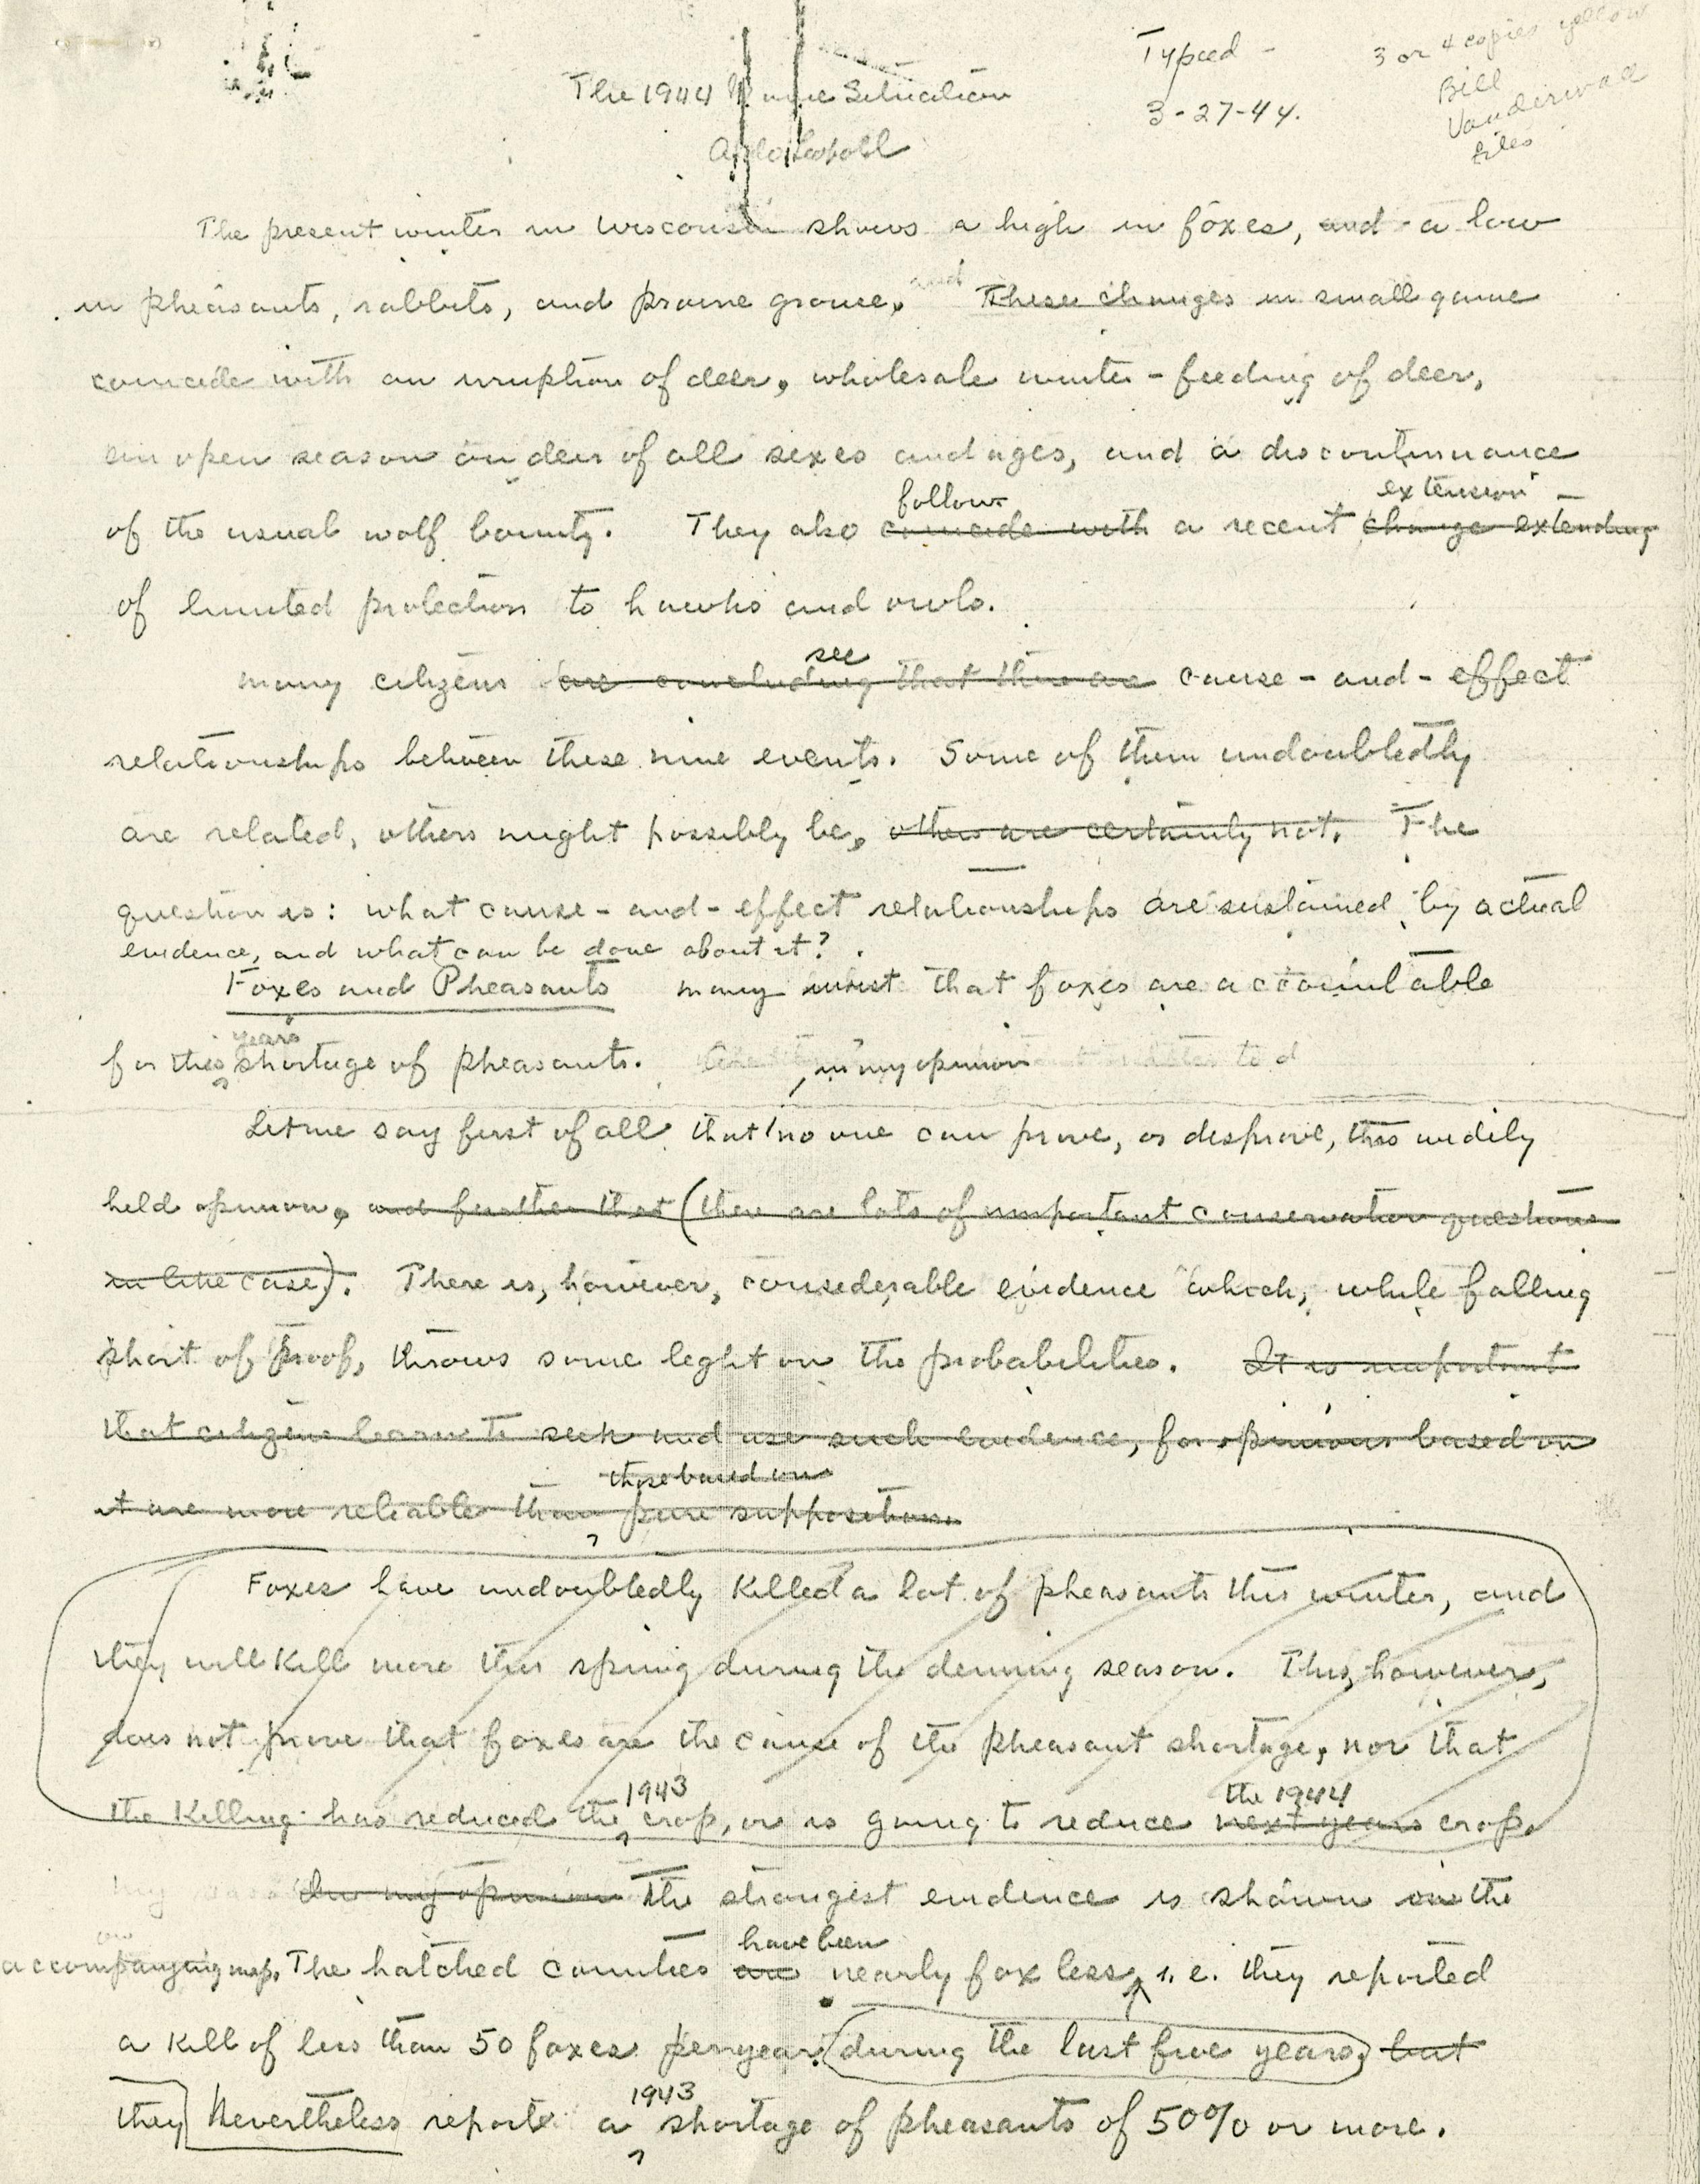 The 1944 Game Situation
Aldo Leopold
Typed -
3-27-44.
3 or 4 copies yellow
Bill
Vanderwall
files
The present winter in Wisconsin shows a high in foxes, and a low
in pheasants, rabbits, and prairie grouse. and These changes in small game
coincide with an irruption of deer, wholesale winter-feeding of deer,
an open season on deer of all sexes and ages, and a discontinuance
follow extension
of the usual wolf bounty. They also coincide with a recent change extending
of limited protection to hawks and owls.
see
Many citizens are concluding that there are cause-and-effect
relationships between these nine events. Some of them undoubtedly
are related, others might possibly be, others are certainly not. The
question is: what cause-and-effect relationships are sustained by actual
evidence, and what can be done about it?
Foxes and Pheasants Many insist that foxes are accountable
years
for this shortage of pheasants.
, in my opinion
Let me say first of all that no one can prove, or disprove, this widely
held opinion, and further that (there are lots of important conservation questions
in like case). There is, however, considerable evidence which, while falling
short of proof, throws some light on the probabilities. It is important
that citizens learn to seek and use such evidence, for opinions based on
those based on
it are more reliable than pure supposition.
Foxes have undoubtedly killed a lot of pheasants this winter, and
they will kill more this spring during the denning season. This, however,
does not prove that foxes are the cause of the pheasant shortage, nor that
1943 the 1944
the killing has reduced the crop, or is going to reduce next years crop.
In my opinion The strongest evidence is shown on the
have been
accompanying map. The hatched counties are nearly foxless, i.e. they reported
a kill of less than 50 foxes per year (during the last five years) but
1943
they Nevertheless report a shortage of pheasants of 50% or more.